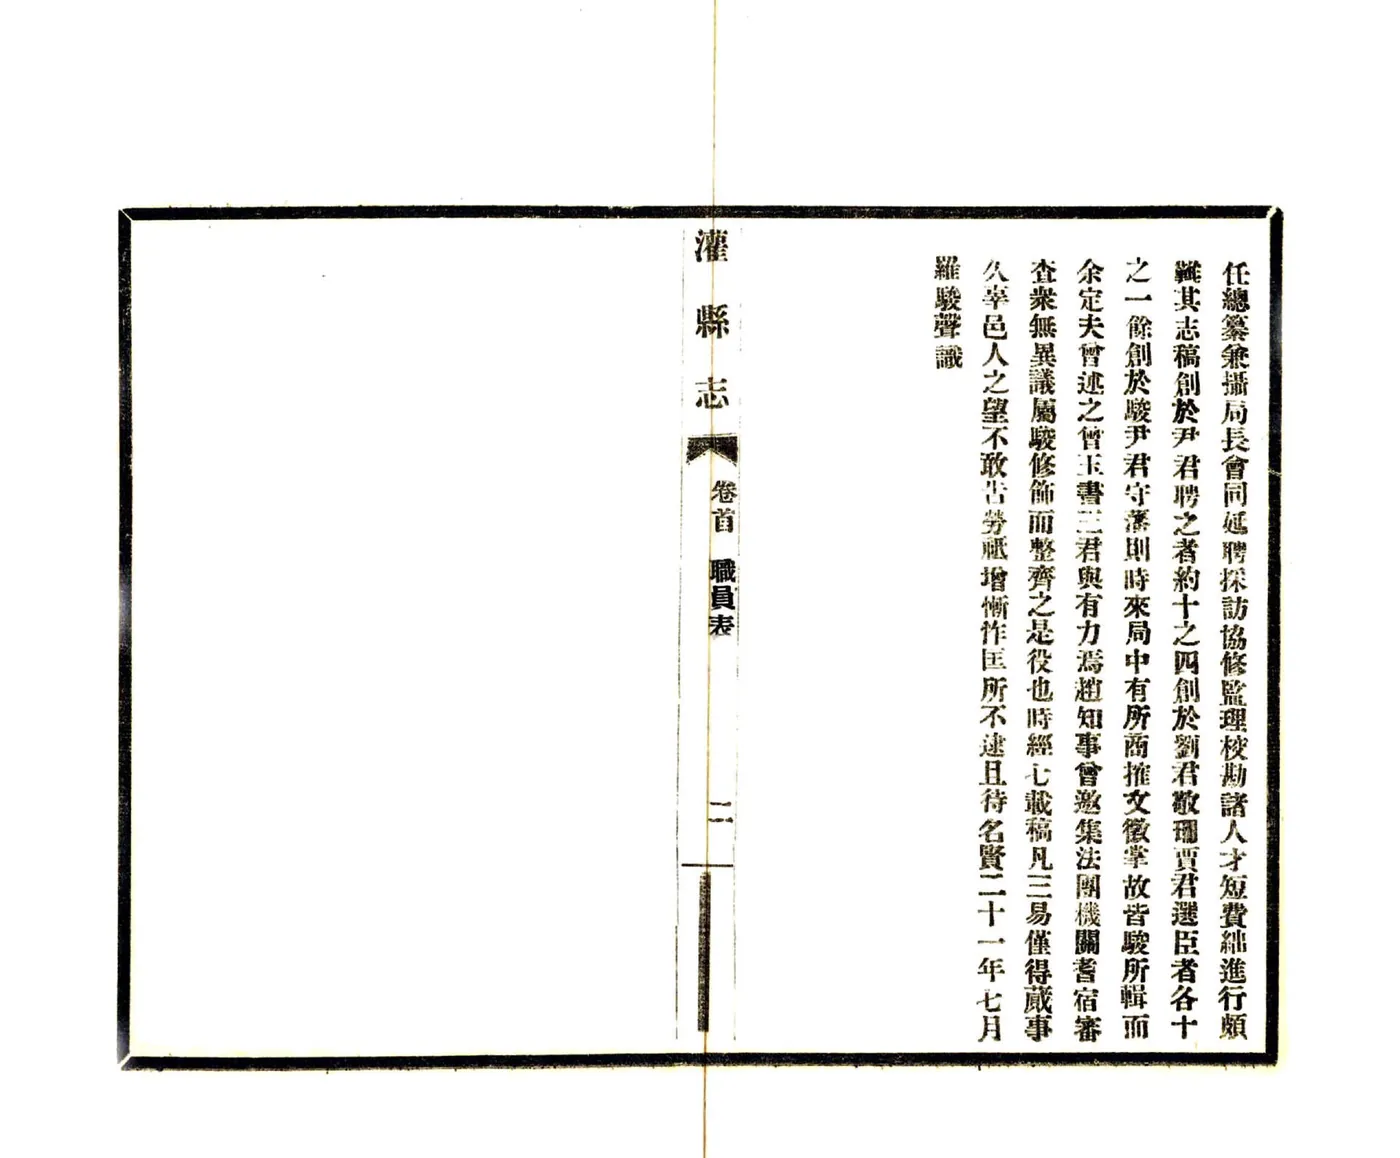 任總纂兼攝局長會同延聘採訪協修監理校勘諸人才短費絀進行頗
難其志稿創於尹君聘之者約十之四創於劉君敬瓓賈君選臣者各十
之一餘創於駿尹君守藩則時來局中有所商搉文徵掌故皆駿所輯而
余定夫曾述之曾玉書三君與有力焉趙知事曾邀集法團機關耆宿審
查衆無異議屬駿修飾而整齊之是役也時經七載稿凡三易僅得蕆事
久辜邑人之望不敢告勞祗增慚怍匡所不逮且待名賢二十一年七月
羅駿聲識
灌縣志
卷首 職員表
二